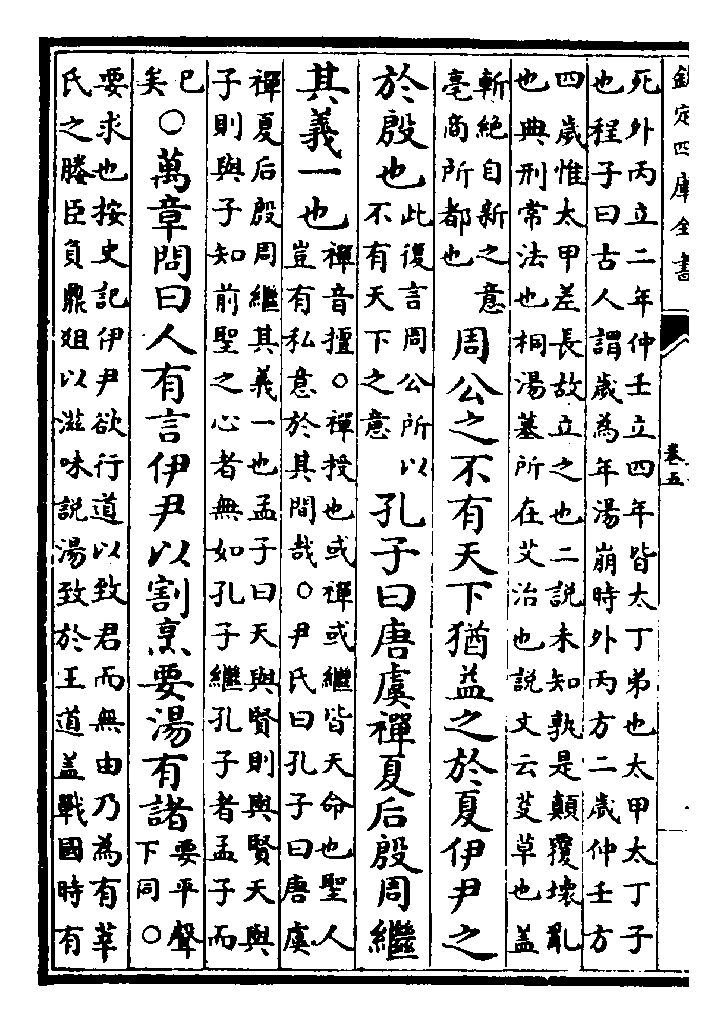 欽定四庫全書
卷五
死外丙立二年仲壬立四年皆太丁弟也太甲太丁子
也程子曰古人謂歲為年湯崩時外丙方二歲仲壬方
四歲惟太甲差長故立之也二說未知孰是顛覆壞亂
也典刑常法也桐湯墓所在艾治也說文云芟草也蓋
斬絕自新之意
亳商所都也
周公之不有天下猶益之於夏伊尹之
於殷也
此復言周公所以
不有天下之意
孔子曰唐虞禪夏后殷周繼
其義一也
禪音擅○禪授也或禪或繼皆天命也聖人
豈有私意於其間哉○尹氏曰孔子曰唐虞
禪夏后殷周繼其義一也孟子曰天與賢則與賢天與
子則與子知前聖之心者無如孔子繼孔子者孟子而
已
矣
○萬章問曰人有言伊尹以割烹要湯有諸
要平聲
下同○
要求也按史記伊尹欲行道以致君而無由乃為有莘
氏之媵臣負鼎俎以滋味說湯致於王道盖戰國時有